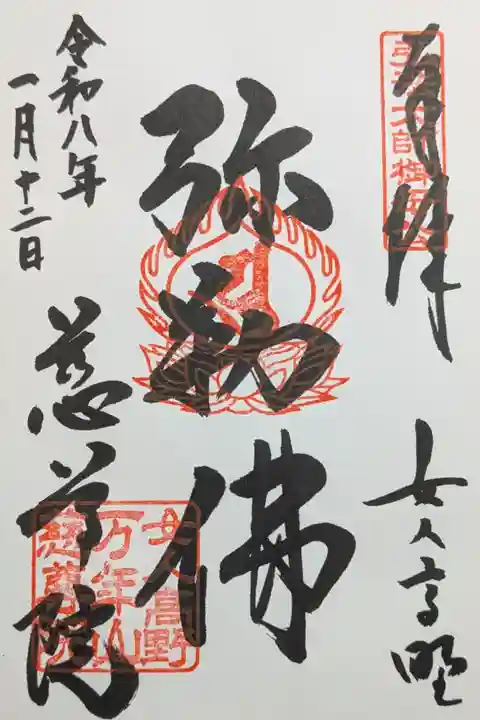 奉拝
女人高野
弥勒佛
令和八年
一月十二日
慈尊院
女人高野
万年山
慈尊院